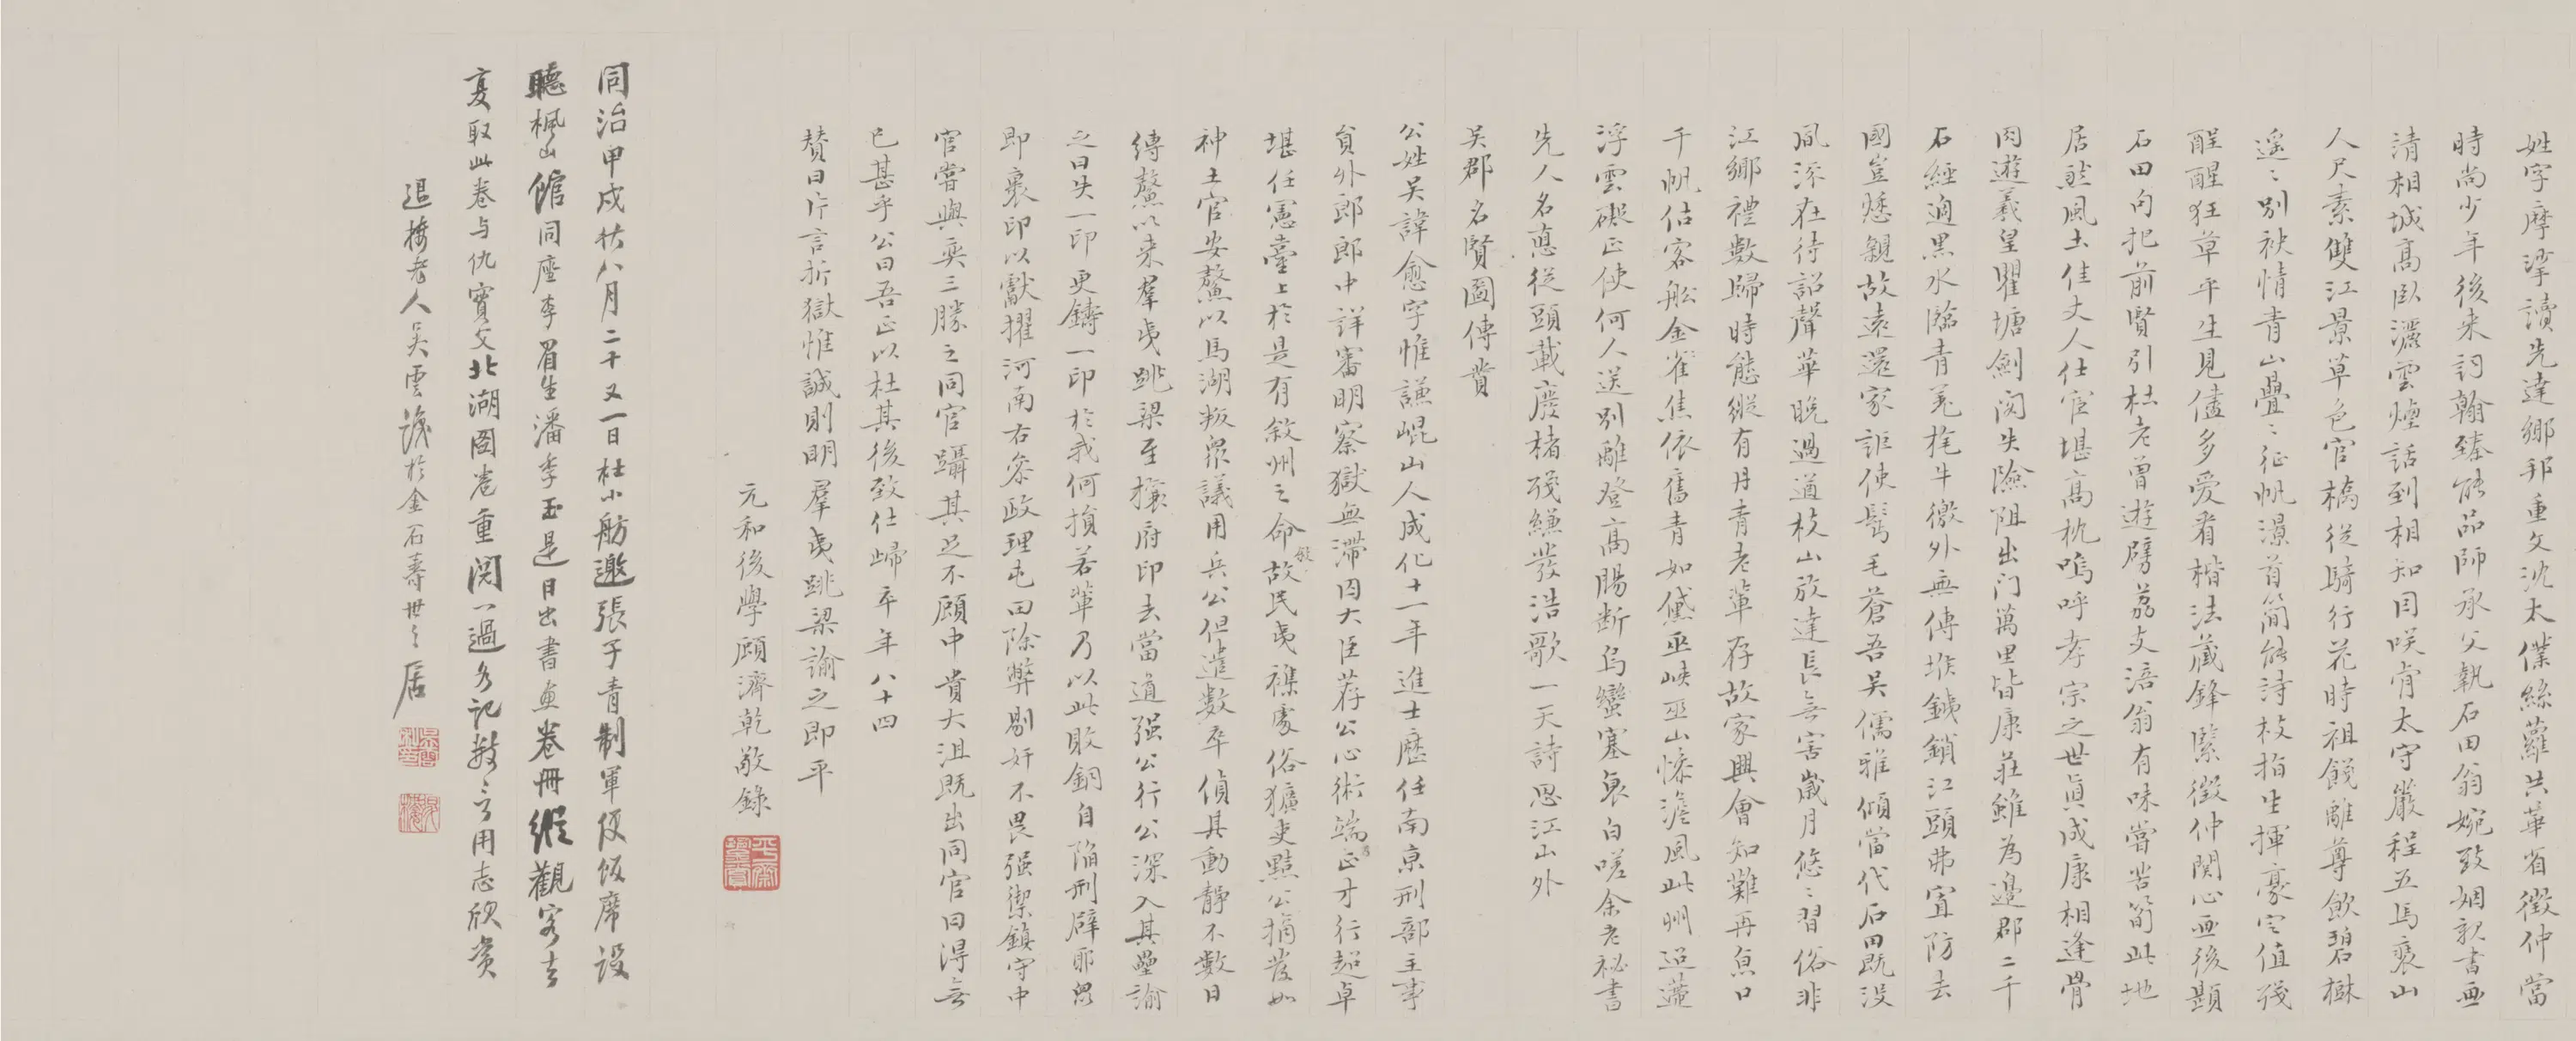 姓字摩挲讀先達鄉邦重文沈太僕絲蘿共華省徵仲當
時尚少年後来詞翰臻能品師承父執石田翁婉致姻親書画
清相城高臥灑雲煙話到相知目咲肯太守嚴程五馬裹山
人尺素雙江景草色官橋從騎行花時祖餞離尊飲碧樹
遥〻別袂情青山疊〻征帆濕首簡能詩枝指生揮豪定值殘
酲醒狂草平生見儘多愛看楷法藏鋒緊徵仲関心画後題
石田句把前賢引杜老曾遊劈荔支涪翁有味嘗苦筍此地
居然風土佳丈人仕宦堪高枕嗚呼孝宗之世真成康相逢骨
肉遊羲皇瞿塘劍閣失險阻出门萬里皆康莊雖為邊郡二千
石經過黑水臨青羌旄牛徼外無傳堠鉄鎖江頭弗宜防去
國豈愁親故遠還家詎使鬢毛蒼吾吴儒雅傾當代石田既没
風流在待詔聲華晚過遒枝山放達長無害歲月悠〻習俗非
江鄉禮數歸時態縱有丹青老輩存故家興會知難再魚口
千帆估客船金雀焦依舊青如黛巫峽巫山慘澹風此州迢遰
浮雲礙正使何人送別離登高腸断烏蠻塞衰白嗟余老祕書
先人名德從頭載廢楮殘縑發浩歌一天詩思江山外
吴郡名賢圖傳賛
公姓吴諱愈字惟謙崐山人成化十一年進士歷任南京刑部主事
員外郎郎中詳審明察獄無滯囚大臣荐公心術端正才行超卓
堪任憲臺上於是有敘州之命敘故民夷襍處俗獷吏黠公摘發如
神土官安鰲以馬湖叛眾議用兵公但遣數卒偵其動靜不數日
縛鰲以来羣夷跳梁至攘府印去當道强公行公深入其壘諭
之曰失一印更鑄一印於我何損若輩乃以此敗銅自陷刑辟耶眾
即裹印以獻擢河南右叅政理屯田除弊剔奸不畏强禦鎮守中
官嘗與奕三勝之同官躡其足不顧中貴大沮既出同官曰得無
已甚乎公曰吾正以杜其後致仕歸卒年八十四
賛曰片言折獄惟誠則明羣夷跳梁諭之即平
元和後學顧濟乾敬錄
同治甲戌秋八月二十又一日杜小舫邀張子青制軍便飯席設
聽楓山館同座李眉生潘季玉是日出書画卷冊縱觀客去
夏取此卷与仇實父北湖圖卷重閱一過為記數言用志欣賞
退樓老人吴雲識於金石壽世之居